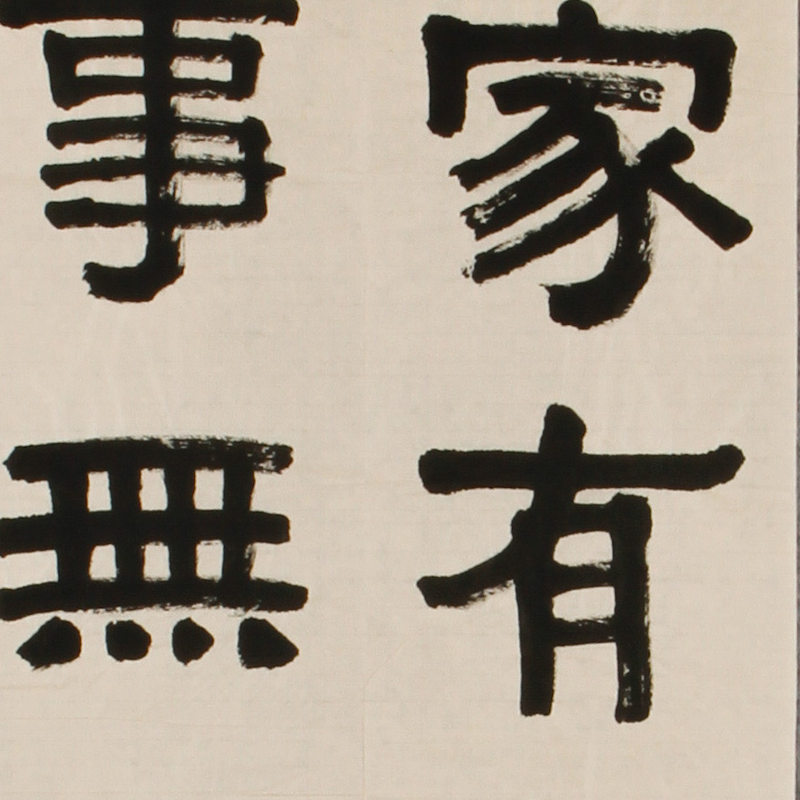 家有
事無